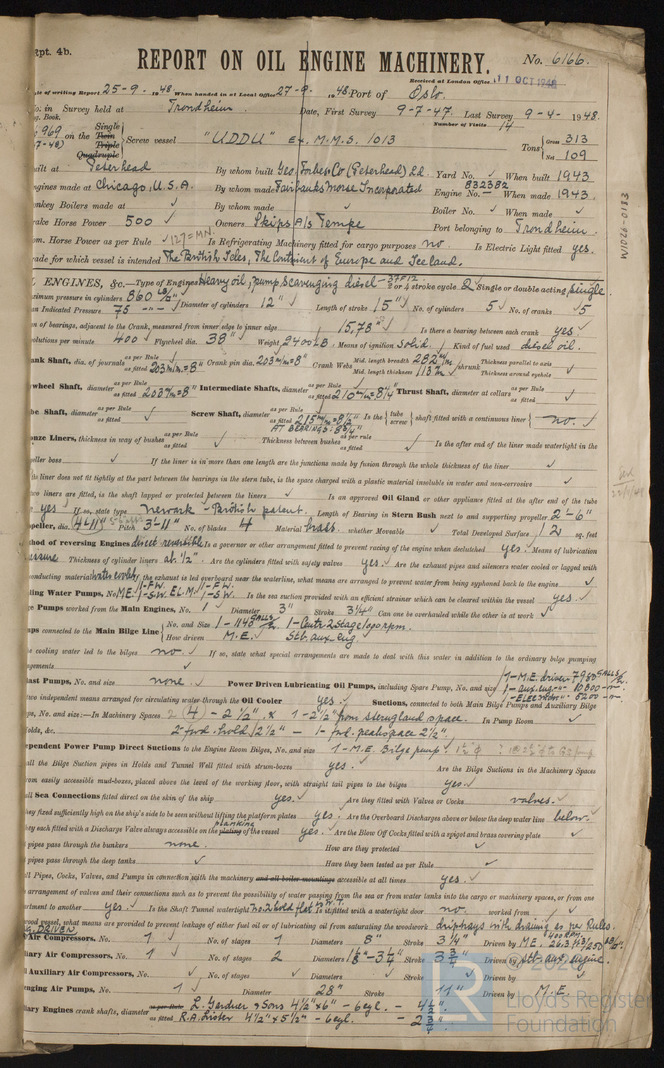 Rpt. 4b.
REPORT ON OIL ENGINE MACHINERY.
No. 6166.
Received at London Office 11 OCT 1948
of writing Report 25-9-1948 When handed in at Local Office 27-9-1948 Port of Oslo.
in Survey held at Trondheim Date, First Survey 9-7-47. Last Survey 9-4-1948.
Book. Number of Visits 14
969 on the Single Twin Triple Quadruple Screw vessel "UDDU" Ex. M.M.S. 1013 Tons Gross 313 Net 109
built at Peterhead By whom built Geo. Forbes Co (Peterhead) Ld. Yard No. ✓ When built 1943
Engines made at Chicago, U.S.A. By whom made Fairbanks Morse Incorporated Engine No. 832382 When made 1943.
Donkey Boilers made at ✓ By whom made ✓ Boiler No. ✓ When made ✓
Brake Horse Power 500 ✓ Owners Skips A/s Tempe Port belonging to Trondheim.
Nom. Horse Power as per Rule 127=MN. Is Refrigerating Machinery fitted for cargo purposes no. Is Electric Light fitted yes.
Trade for which vessel is intended The British Isles, The Continent of Europe and Iceland.
OIL ENGINES, &c.—Type of Engines Heavy oil, pump scavenging diesel 37F12 2 or 4 stroke cycle 2 Single or double acting single.
Maximum pressure in cylinders 860 lb/□" Diameter of cylinders 12" Length of stroke 15" No. of cylinders 5 No. of cranks 5
Mean Indicated Pressure 75
of bearings, adjacent to the Crank, measured from inner edge to inner edge 15,78" Is there a bearing between each crank yes
Revolutions per minute 400 Flywheel dia. 38" Weight 2400 LB. Means of ignition Solid. Kind of fuel used diesel oil.
Crank Shaft, dia. of journals as per Rule as fitted 203 m/m=8" Crank pin dia. 203 m/m=8" Crank Webs Mid. length breadth 282 m/m Mid. length thickness 113 m/m shrunk Thickness parallel to axis Thickness around eyehole
Flywheel Shaft, diameter as per Rule as fitted 203 m/m=8" Intermediate Shafts, diameter as per Rule as fitted 210 m/m=8¼" Thrust Shaft, diameter at collars as per Rule as fitted
Tube Shaft, diameter as per Rule as fitted Screw Shaft, diameter as per Rule as fitted 215 m/m=8½" AT BEARINGS: 8¾" Is the tube screw shaft fitted with a continuous liner no.
Bronze Liners, thickness in way of bushes as per Rule as fitted Thickness between bushes as per rule as fitted Is the after end of the liner made watertight in the
propeller boss If the liner is in more than one length are the junctions made by fusion through the whole length of the liner
If the liner does not fit tightly at the part between the bearings in the stern tube, is the space charged with a plastic material insoluble in water and non-corrosive
If two liners are fitted, is the shaft lapped or protected between the liners Is an approved Oil Gland or other appliance fitted at the after end of the tube
yes If so, state type Newark - British patent. Length of Bearing in Stern Bush next to and supporting propeller 2'-6"
Propeller, dia. 4'-11" Pitch 3'-11" No. of blades 4 Material brass. whether Moveable Total Developed Surface 12 sq. feet
Method of reversing Engines direct reversible Is a governor or other arrangement fitted to prevent racing of the engine when declutched yes. Means of lubrication
pressure Thickness of cylinder liners ab. ½". Are the cylinders fitted with safety valves yes. Are the exhaust pipes and silencers water cooled or lagged with
non-conducting material water cooled If the exhaust is led overboard near the waterline, what means are arranged to prevent water from being syphoned back to the engine
Cooling Water Pumps, No. M.E. 1-F.W. 1-S.W. EL.M. 1-F.W. 1-S.W. Is the sea suction provided with an efficient strainer which can be cleared within the vessel yes.
Bilge Pumps worked from the Main Engines, No. 1 Diameter 3" Stroke 3¼" Can one be overhauled while the other is at work
Pumps connected to the Main Bilge Line No. and Size 1-1140 GALLS/h. 1-Centr. 2 Stage 1090 rpm.
How driven M.E. Stb. aux. eng.
Is the cooling water led to the bilges no. If so, state what special arrangements are made to deal with this water in addition to the ordinary bilge pumping
arrangements
Ballast Pumps, No. and size none. Power Driven Lubricating Oil Pumps, including Spare Pump, No. and size 1-M.E. driven 7980 GALLS/h.
Are two independent means arranged for circulating water through the Oil Cooler yes. Suctions, connected to both Main Bilge Pumps and Auxiliary Bilge
Pumps, No. and size:—In Machinery Spaces 2 (4) - 2½" & 1-2½" from sterngland space. In Pump Room
Holds, &c. 2-fwd. hold (2½" - 1-fwd. peakspace 2½".
Independent Power Pump Direct Suctions to the Engine Room Bilges, No. and size 1-M.E. Bilge pump
Are all the Bilge Suction pipes in Holds and Tunnel Well fitted with strum-boxes yes. Are the Bilge Suctions in the Machinery Spaces
from easily accessible mud-boxes, placed above the level of the working floor, with straight tail pipes to the bilges yes.
Are all Sea Connections fitted direct on the skin of the ship yes. Are they fitted with Valves or Cocks valves.
Are they fixed sufficiently high on the ship's side to be seen without lifting the platform plates yes. Are the Overboard Discharges above or below the deep water line below.
Are they each fitted with a Discharge Valve always accessible on the plating planking of the vessel yes. Are the Blow Off Cocks fitted with a spigot and brass covering plate
pipes pass through the bunkers none. How are they protected
pipes pass through the deep tanks Have they been tested as per Rule
Are all Pipes, Cocks, Valves, and Pumps in connection with the machinery and all boiler mountings accessible at all times yes.
arrangement of valves and their connections such as to prevent the possibility of water passing from the sea or from water tanks into the cargo or machinery spaces, or from one
compartment to another yes. Is the Shaft Tunnel watertight No. 2 hold flat is W.T. Is it fitted with a watertight door no. worked from
wood vessel, what means are provided to prevent leakage of either fuel oil or of lubricating oil from saturating the woodwork driptrays with drains as per Rules.
Air Compressors, No. 1 No. of stages 1 Diameters 8" Stroke 3¼" Driven by M.E.
Auxiliary Air Compressors, No. 1 No. of stages 2 Diameters Stroke 3¾" Driven by Stb. aux. engine.
Small Auxiliary Air Compressors, No. No. of stages Diameters Stroke Driven by
Scavenging Air Pumps, No. 1 Diameter 28" Stroke 11" Driven by M.E.
Auxiliary Engines crank shafts, diameter as per Rule L. Gardner & Sons 4½"x6" - 6 cyl.
as fitted R.A. Lister 4½"x5½" - 6 cyl. - 2¾"
W1070-0183
© 2020
Lloyd's Register
Foundation